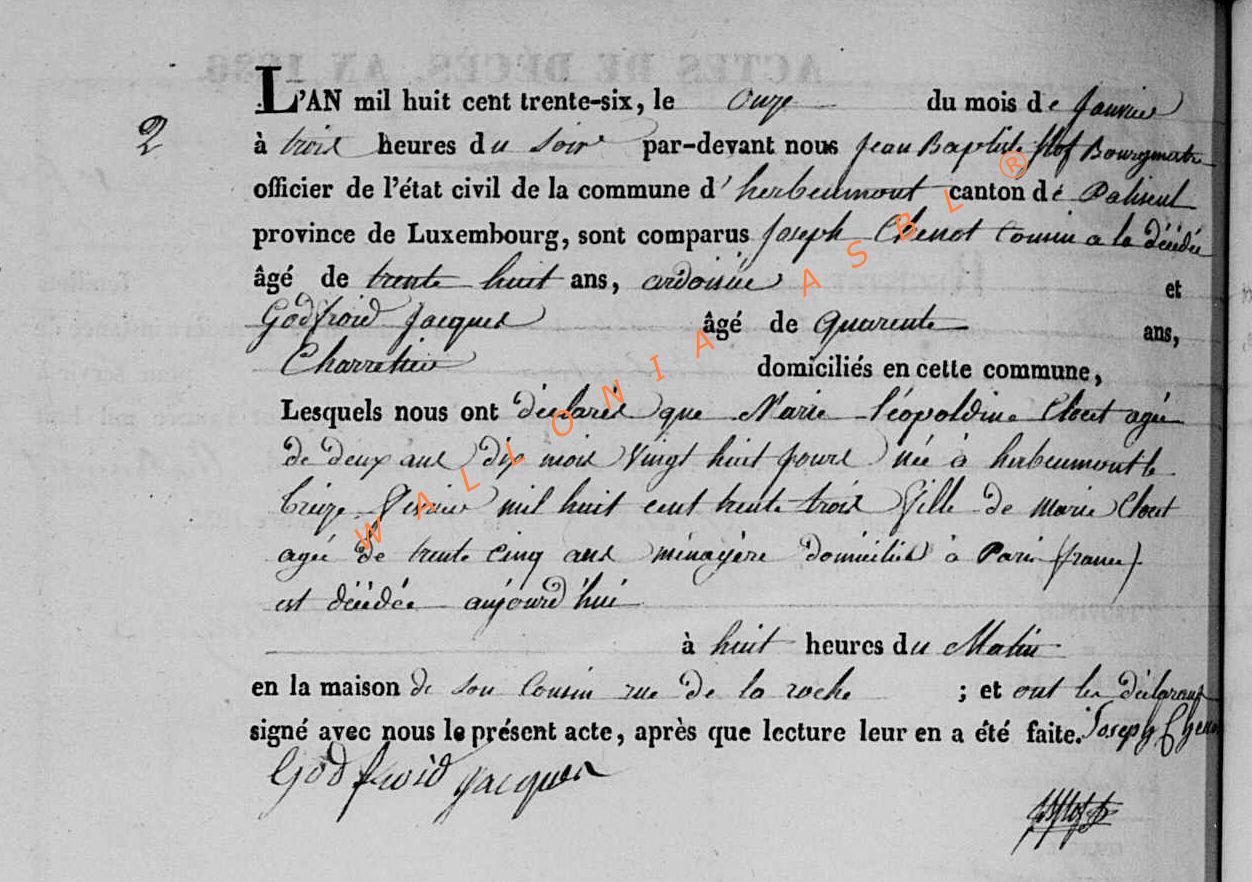 ACTES DE DÉCÈS, AN 1836.
2
L'AN mil huit cent trente-six, le onze du mois de janvier
à trois heures du soir par-devant nous jean Baptiste Bourgmestre
officier de l'état civil de la commune d'herbeumont canton de Paliseul
province de Luxembourg, sont comparus joseph Chenot Cousin a la décédée
âgé de trente huit ans, ardoisier et
Godfroid jacques âgé de quarente ans,
Charretier domiciliés en cette commune,
Lesquels nous ont déclarés que Marie léopoldine Clout agée
de deux ans dix mois vingt huit jours née à herbeumont le
treize fevrier mil huit cent trente trois fille de marie Clout
agée de trente cinq ans ménagère domiciliée à Paris (france)
est décédée aujourd'hui
à huit heures du Matin
en la maison de son Cousin rue de la roche ; et ont les déclarans
signé avec nous le présent acte, après que lecture leur en a été faite. Joseph Chenot
Godfroid jacques
WALLONIA ASBL ®